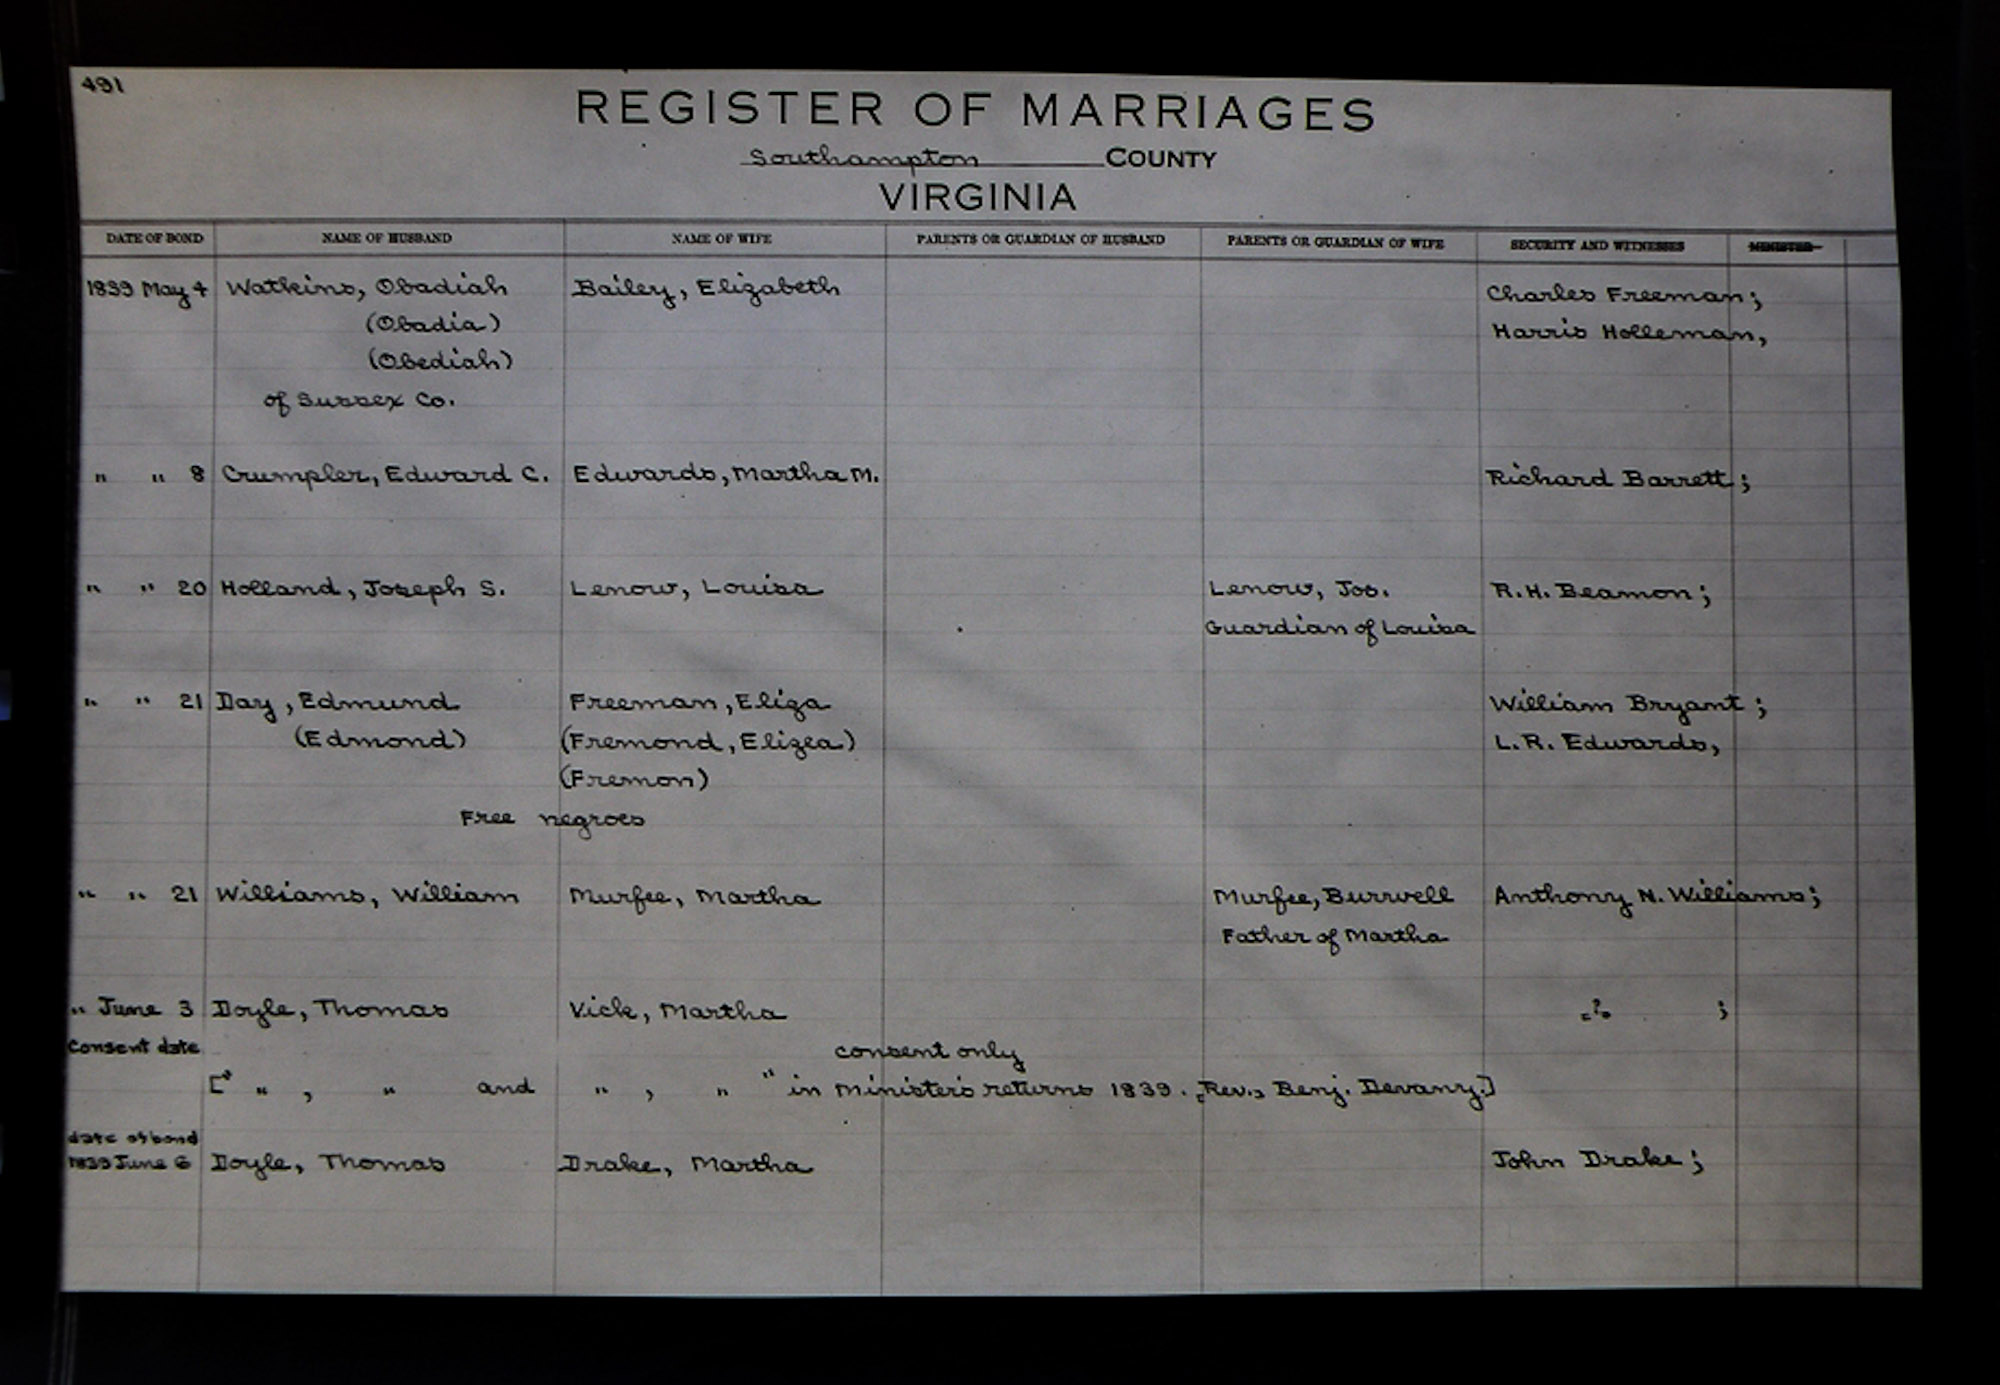 491
REGISTER OF MARRIAGES
Southampton COUNTY
VIRGINIA
DATE OF BOND NAME OF HUSBAND NAME OF WIFE PARENTS OR GUARDIAN OF HUSBAND PARENTS OR GUARDIAN OF WIFE SECURITY AND WITNESSES MINISTER
1839 May 4 Watkins, Obadiah Bailey, Elizabeth Charles Freeman;
(Obadia) Harris Holleman,
(Obediah)
of Sussex Co.
" " 8 Crumpler, Edward C. Edwards, Martha M. Richard Barrett;
" " 20 Holland, Joseph S. Lenow, Louisa Lenow, Jos. R.H. Beamon;
Guardian of Louisa
" " 21 Day, Edmund Freeman, Eliza William Bryant;
(Edmond) (Fremond, Elizea) L.R. Edwards,
(Fremon)
Free negroes
" " 21 Williams, William Murfee, Martha Murfee, Burwell Anthony N. Williams;
Father of Martha
" June 3 Doyle, Thomas Vick, Martha ? ;
Consent date consent only
[" " , " and " , " " in Minister's returns 1839. [Rev.] Benj. Devany.]
date of bond
1839 June 6 Doyle, Thomas Drake, Martha John Drake;